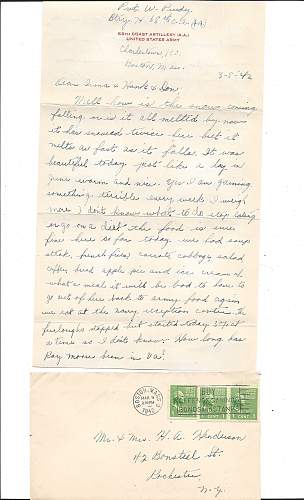 Pvt. W. Purdy
Btry. H 68th C.A. (AA)
68TH COAST ARTILLERY (A.A.)
UNITED STATES ARMY
Charlestown, N.Y.
Boston, Mass.
3-5-42
Dear Irma & Hank & Son,
Well how is the snow coming
falling or is it all melted by now
it has snowed twice here but it
melts as fast as it falls. It was
beautiful today just like a day in
June warm and nice. Yes I am gaining
something terrible every week I weigh
more I don't know what to do stop eating
or go on a diet the food is sure
fine here so far today we had soup
steak, french fries, carrots, cabbage salad
coffee, bread apple pie and ice cream
what a meal it will be bad to have to
go out of here back to army food again
we eat at the navy reception center. The
furloughs stopped but started today
at a time so I don't know. How long has
Ray been in Va?
BOSTON, MASS.
MAR 9
1942
BUY
DEFENSE SAVINGS
BONDS AND STAMPS
1 CENT 1
Mr. & Mrs. H. A. Henderson
42 Bonsteel St.
Rochester
N.Y.